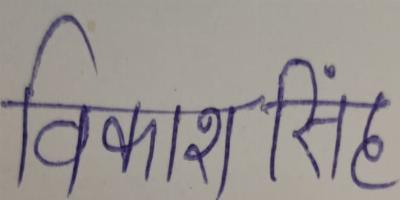 विकाश सिंह